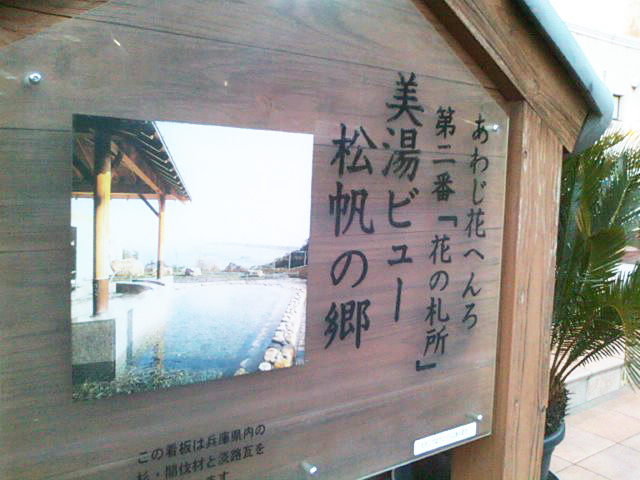 あわじ花へんろ
第二番「花の札所」
美湯ビュー
松帆の郷
この看板は兵庫県内の
杉・間伐材と淡路瓦を